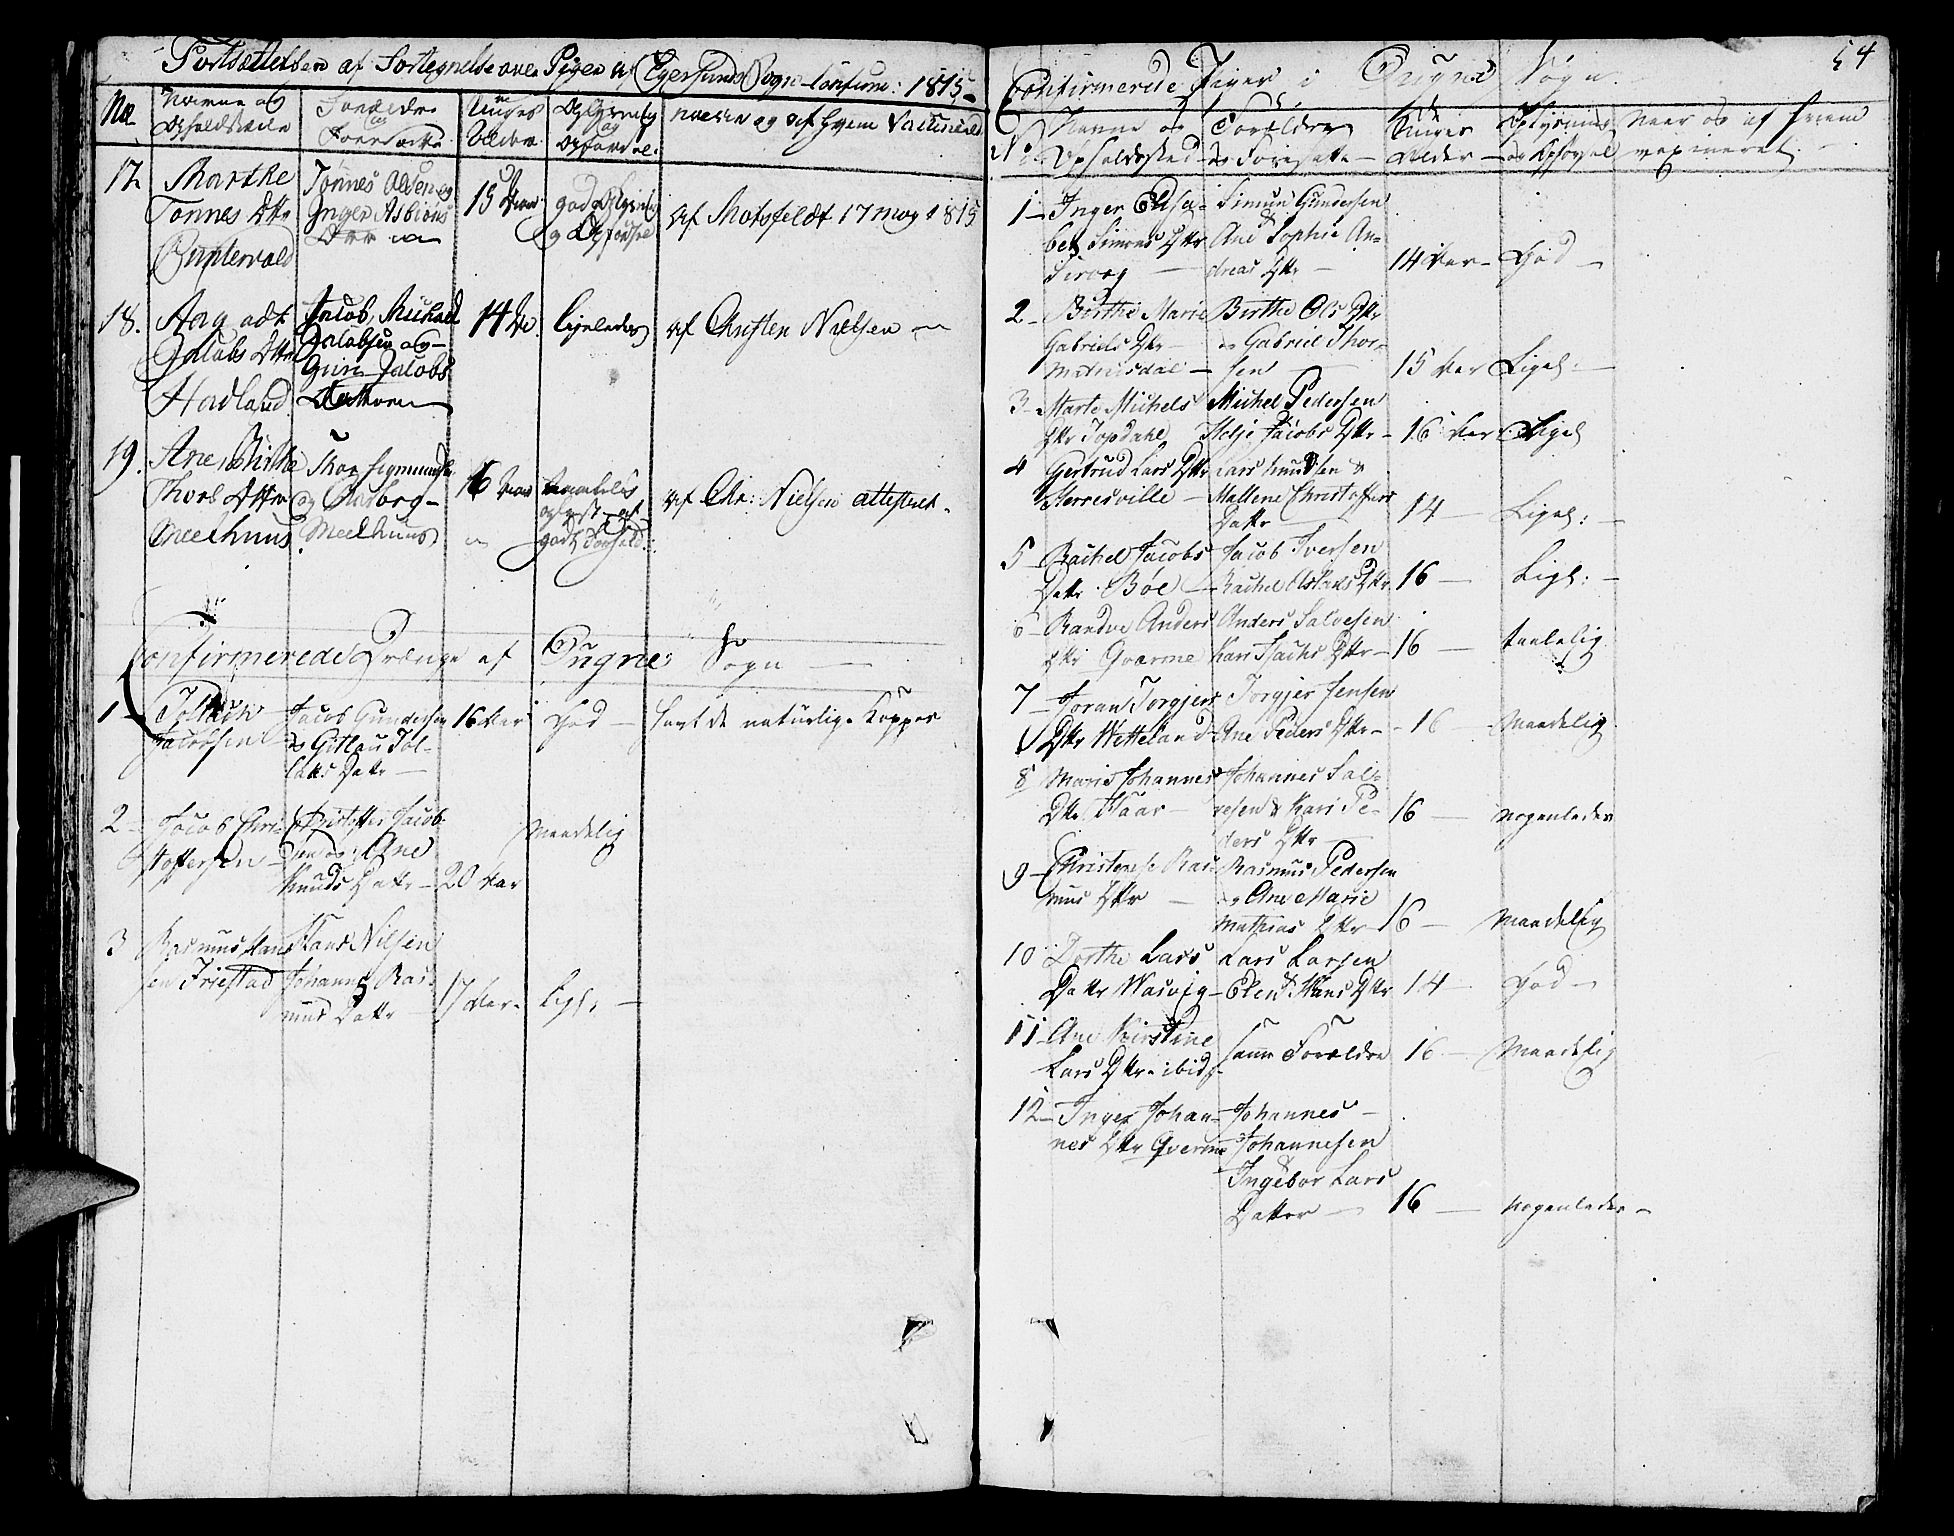 Fortsættelsen af Fortegnelse over Piger af Egersunds Sogn Confirm: 1815
No
Navne og Opholdsstæde
Forældre og Foresadte
Unges Alder
Oplysning og Opførsel
naar og af hvem Vaccineret
17. Marthe Tonnes Dtr
Tönnes Olsen og Inger Asbiörns
15 Aar
god Oplysning og Opførsel
af Motzfeldt 17 may 1815
18. Jacobs Dtr Hadland
Jacob Michael Jacobsen og Guri Jacobs Datter
14 Do
ligeledes
af Christen Nielsen
19. Ane Birthe Thors Dtter Meelhuus
Thor Sigmundsen og Aasborg Meelhuus
16 Aar
maadelig oplyst af godt Forhold
af Chr: Nielsen attesteret
Confirmerede Drænge af Ougne Sogn
1 Tollach Jacobsen
Jacob Gundersen & Gitlau Tollaks Datr
16 Aar
God
havt de naturlige Kopper
2 Jacob Christoffersen
Christoffer Jacobsen og Ane Knuds Datr
20 Aar
Maadelig
3 Rasmus Hansen Friestad
Hans Nilsen Johanne Rasmus Datr
17 Aar
Ligl:
54
Confirmerede Piger i Ougne Sogn
No
Navne og Opholdsted
Forældre og Foresatte
Unges Alder
Oplysning og Opførsel
Naar og af hvem vaxineret
1 Inger Elisabet Simons Dtr Sirvog
Simon Gundersen & Ane Sophie Andreas Dtr
14 Aar
God
2 Birthe Marie Gabriels Dtr
Birthe Ols Dtr & Gabriel Thorsen
15 Aar
Ligel:
3 Marte Michels Dtr Topdahl
Michel Pedersen Helje Jacobs Dtr
16 Aar
Ligel
4 Gertrud Lars Dtr
Lars Knudsen & Mallene Christoffers Datr
14
Ligel:
5 Rachel Jacobs Datr Böe
Jacob Iversen Rachel Aslaks Dtr
16
Ligl:
6 Randve Anders Dtr Qvarme
Anders Salvesen Kari Isachs Dtr
16
taalelig
7 Joran Torgjers Dtr Wetteland
Torgjer Jensen Ane Peders Dtr
16
Maadelig
8 Maris Johannes Dtr Haar
Johannes Salvesen & Kari Peders Dtr
16
nogenledes
9 Christense Rasmus Dtr
Rasmus Pedersen & Ane Marie Mathias Dtr
16
Maadelig
10 Dorthe Lars Datr
Lars Larsen Elen Hans Dtr
14
God
11 Ane Kirstine Lars Dtr ibid
samme Forældre
16
Maadelig
12 Inger Johannes Dtr Qverme
Johannes Johannesen & Ingebor Lars Datter
16
nogenledes